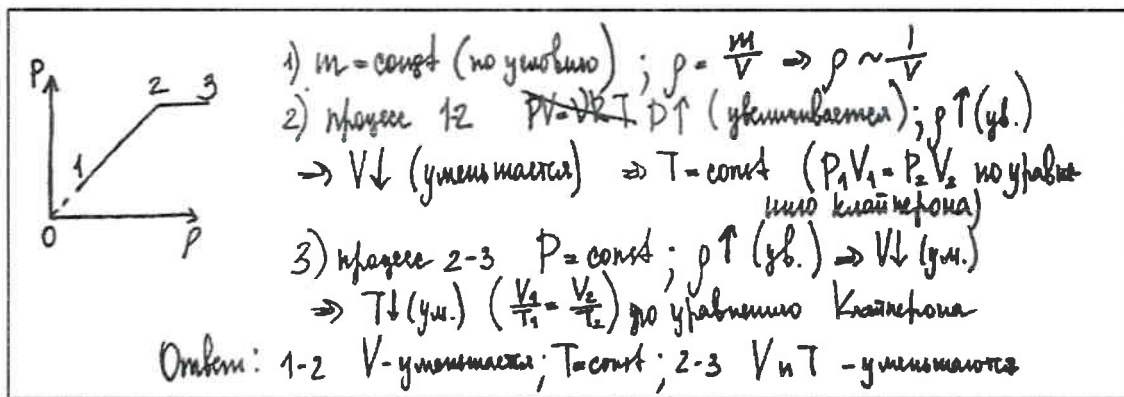 P
1
2
3
0
ρ
1) m = const (по условию) ; ρ = m/V ⇒ ρ ~ 1/V
2) процесс 1-2 P↑ (увеличивается) ; ρ↑ (ув.)
⇒ V↓ (уменьшается) ⇒ T = const (P₁V₁ = P₂V₂ по уравне
нию Клайперона)
3) процесс 2-3 P = const ; ρ↑ (ув.) ⇒ V↓ (ум.)
⇒ T↓ (ум.) (V₁/T₁ = V₂/T₂) по уравнению Клайперона
Ответ: 1-2 V - уменьшается; T = const ; 2-3 V и T - уменьшаются